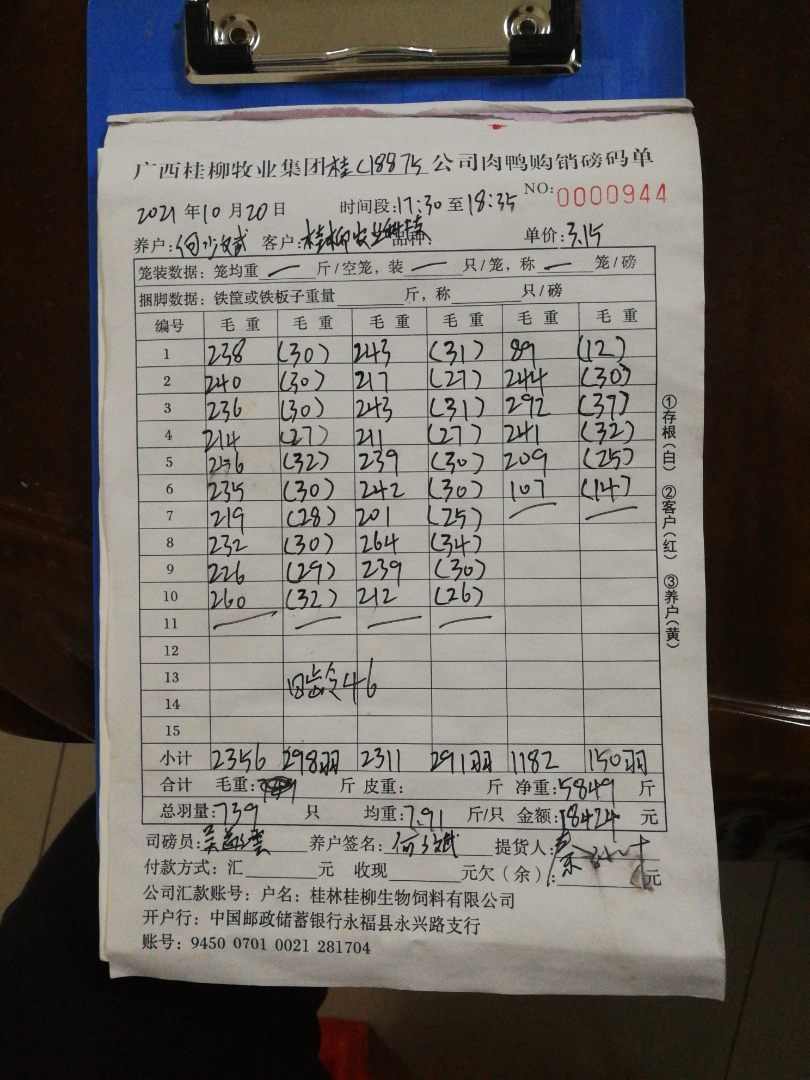 广西桂柳牧业集团桂C18875公司肉鸭购销磅码单
NO: 0000944
2021年10月20日 时间段:17:30至18:35
养户: 客户:桂柳农业 品种: 单价:3.15
笼装数据:笼均重 — 斤/空笼,装 — 只/笼,称 — 笼/磅
捆脚数据:铁筐或铁板子重量 斤,称 只/磅
编号 毛重 毛重 毛重 毛重 毛重 毛重
1 238 (30) 243 (31) 89 (12)
2 240 (30) 217 (27) 244 (30)
3 236 (30) 243 (31) 292 (37)
4 214 (27) 211 (27) 241 (32)
5 256 (32) 239 (30) 209 (25)
6 235 (30) 242 (30) 107 (14)
7 219 (28) 201 (25) — —
8 232 (30) 264 (34)
9 226 (29) 239 (30)
10 260 (32) 212 (26)
11 — — — —
12
13 日龄46
14
15
小计 2356 298羽 2311 291羽 1182 150羽
合计 毛重: 斤 皮重: 斤 净重:5849 斤
总羽量:739 只 均重:7.91 斤/只 金额:18424 元
司磅员: 养户签名: 提货人:
付款方式:汇 元 收现 元欠(余): 元
公司汇款账号:户名:桂林桂柳生物饲料有限公司
开户行:中国邮政储蓄银行永福县永兴路支行
账号:9450 0701 0021 281704
①存根(白) ②客户(红) ③养户(黄)